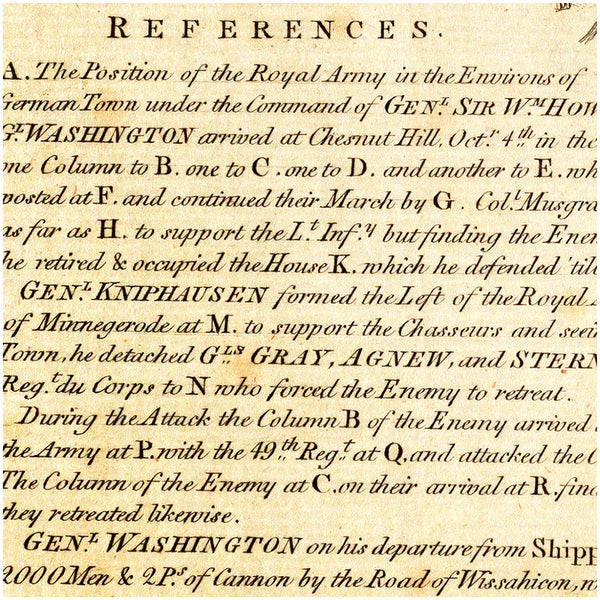 REFERENCES.
A. The Position of the Royal Army in the Environs of
German Town under the Command of GEN.L SIR W.M HOW
G.L WASHINGTON arrived at Chesnut Hill, Oct.r 4.th in the
one Column to B. one to C. one to D. and another to E. wh
posted at F. and continued their March by G. Col.l Musgra
as far as H. to support the L.t Inf.y but finding the Enem
he retired & occupied the House K. which he defended 'til
GEN.L KNIPHAUSEN formed the Left of the Royal A
of Minnegerode at M. to support the Chasseurs and seein
Town, he detached G.LS GRAY, AGNEW, and STERN
Reg.t du Corps to N who forced the Enemy to retreat.
During the Attack the Column B of the Enemy arrived
the Army at P. with the 49.th Reg.t at Q, and attacked the C
The Column of the Enemy at C. on their arrival at R. find
they retreated likewise.
GEN.L WASHINGTON on his departure from Shipp
2000 Men & 2 P.s of Cannon by the Road of Wissahicon, n